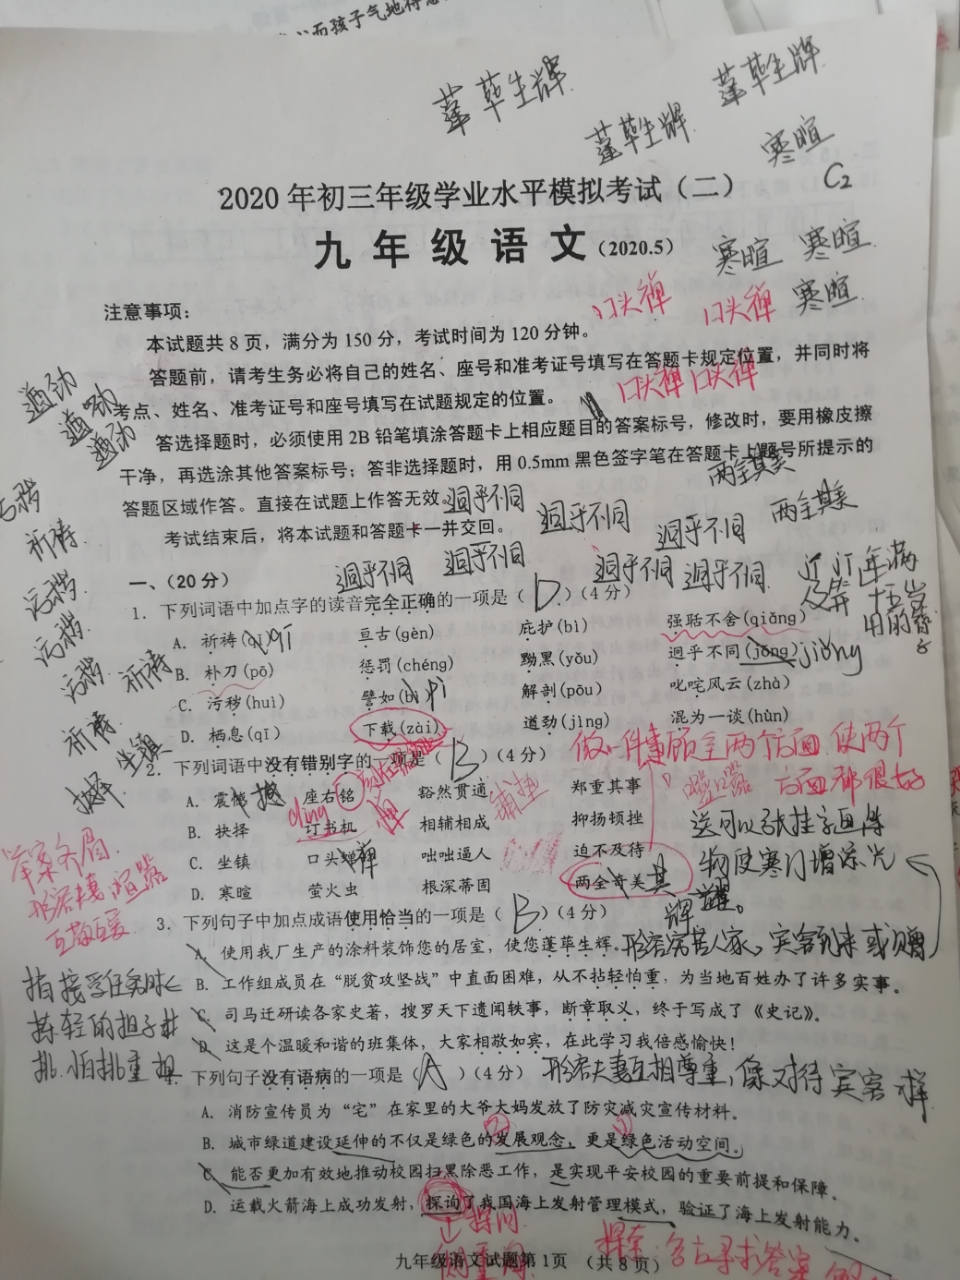 蓬荜生辉
蓬荜生辉
蓬荜生辉
寒暄
C2
2020年初三年级学业水平模拟考试（二）
九年级语文（2020.5）
寒暄 寒暄
寒暄
口头禅 口头禅
口头禅 口头禅
注意事项：
本试题共8页，满分为150分，考试时间为120分钟。
答题前，请考生务必将自己的姓名、座号和准考证号填写在答题卡规定位置，并同时将
考点、姓名、准考证号和座号填写在试题规定的位置。
答选择题时，必须使用2B铅笔填涂答题卡上相应题目的答案标号，修改时，要用橡皮擦
干净，再选涂其他答案标号；答非选择题时，用0.5mm黑色签字笔在答题卡上题号所提示的
答题区域作答。直接在试题上作答无效。
考试结束后，将本试题和答题卡一并交回。
遒劲
遒劲
遒劲
两全其美
两全其美
迥乎不同 迥乎不同 迥乎不同
迥乎不同 迥乎不同 迥乎不同 迥乎不同
污秽
祈祷
污秽
污秽
污秽 祈祷
祈祷 坐镇
抉择
一、（20分）
1. 下列词语中加点字的读音完全正确的一项是（ D ）（4分）
A. 祈祷(qī) qí 亘古(gèn) 庇护(bì) 强聒不舍(qiǎng)
B. 朴刀(pō) 惩罚(chéng) 黝黑(yǒu) 迥乎不同(jǒng) jiǒng
C. 污秽(huì) 譬如(bì) pì 解剖(pōu) 叱咤风云(zhà)
D. 栖息(qī) 下载(zài) 遒劲(jìng) 混为一谈(hùn)
及笄 年满
十五岁
2. 下列词语中没有错别字的一项是（ B ）（4分）
A. 震憾 撼 座右铭 豁然贯通 郑重其事
B. 抉择 订书机 相辅相成 抑扬顿挫
C. 坐镇 口头蝉 禅 咄咄逼人 迫不及待
D. 寒暄 萤火虫 根深蒂固 两全奇美 其
dìng
铺垫
做一件事顾全两个方面，使两个
方面都很好
送可以张挂字画等
物使寒门增添光
辉。
举案齐眉
3. 下列句子中加点成语使用恰当的一项是（ B ）（4分）
A. 使用我厂生产的涂料装饰您的居室，使您蓬荜生辉。
形容穷苦人家，宾客到来或赠
B. 工作组成员在“脱贫攻坚战”中直面困难，从不拈轻怕重，为当地百姓办了许多实事。
C. 司马迁研读各家史著，搜罗天下遗闻轶事，断章取义，终于写成了《史记》。
D. 这是个温暖和谐的班集体，大家相敬如宾，在此学习我倍感愉快！
指接受任务时
拣轻的担子
挑，怕挑重担
形容夫妻互相尊重，像对待宾客一样
4. 下列句子没有语病的一项是（ A ）（4分）
A. 消防宣传员为“宅”在家里的大爷大妈发放了防灾减灾宣传材料。
B. 城市绿道建设延伸的不仅是绿色的发展观念，更是绿色活动空间。
C. 能否更加有效地推动校园扫黑除恶工作，是实现平安校园的重要前提和保障。
D. 运载火箭海上成功发射，探询了我国海上发射管理模式，验证了海上发射能力。
九年级语文试题第1页 （共8页）